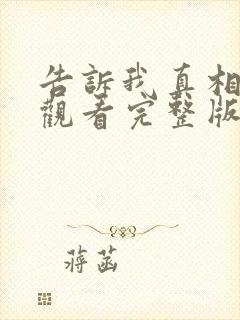 告訴我真相
觀看完整版
蔣菡